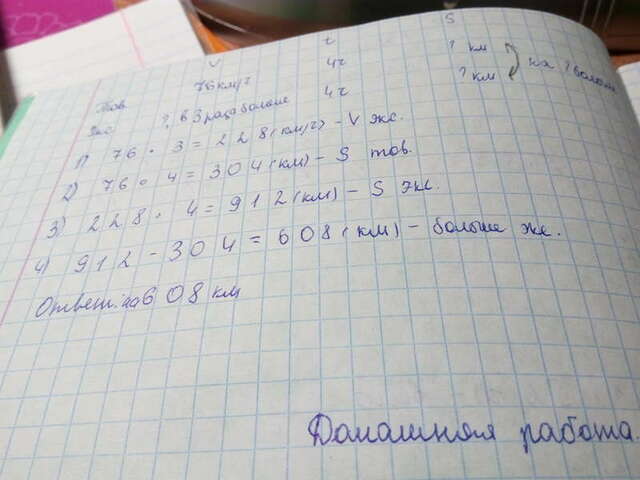 v t S
Тов. 76 км/ч 4ч ? км
Экс. ?, в 3 раза больше 4ч ? км на ? больше
1) 76 · 3 = 228 (км/ч) - V экс.
2) 76 · 4 = 304 (км) - S тов.
3) 228 · 4 = 912 (км) - S экс.
4) 912 - 304 = 608 (км) - больше экс.
Ответ: на 608 км
Домашняя работа.